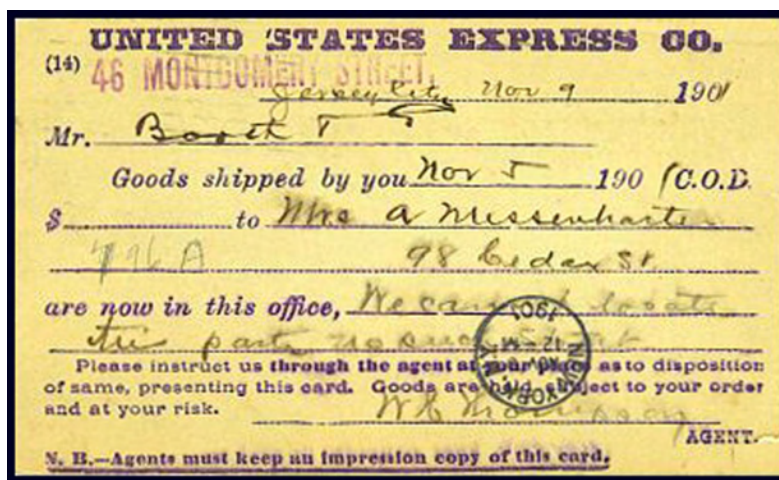 UNITED STATES EXPRESS CO.
(14) 46 MONTGOMERY STREET,
Jersey City Nov 9 1901
Mr. Booth T
Goods shipped by you Nov 5 1901 C.O.D.
$ to Mrs A Messenharter
796 A 98 Cedar St
are now in this office, We cannot locate
the party no such Street
Please instruct us through the agent at your place as to disposition
of same, presenting this card. Goods are held subject to your order
and at your risk.
W E Thompson
AGENT.
N. B.—Agents must keep an impression copy of this card.